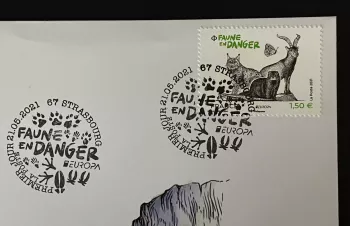 FAUNE
EN DANGER
EUROPA
1,50 €
La Poste 2021
PREMIER JOUR 21.05.2021 67 STRASBOURG
FAUNE
EN DANGER
EUROPA
LA POSTE
PREMIER JOUR 21.05.2021 67 STRASBOURG
FAUNE
EN DANGER
EUROPA